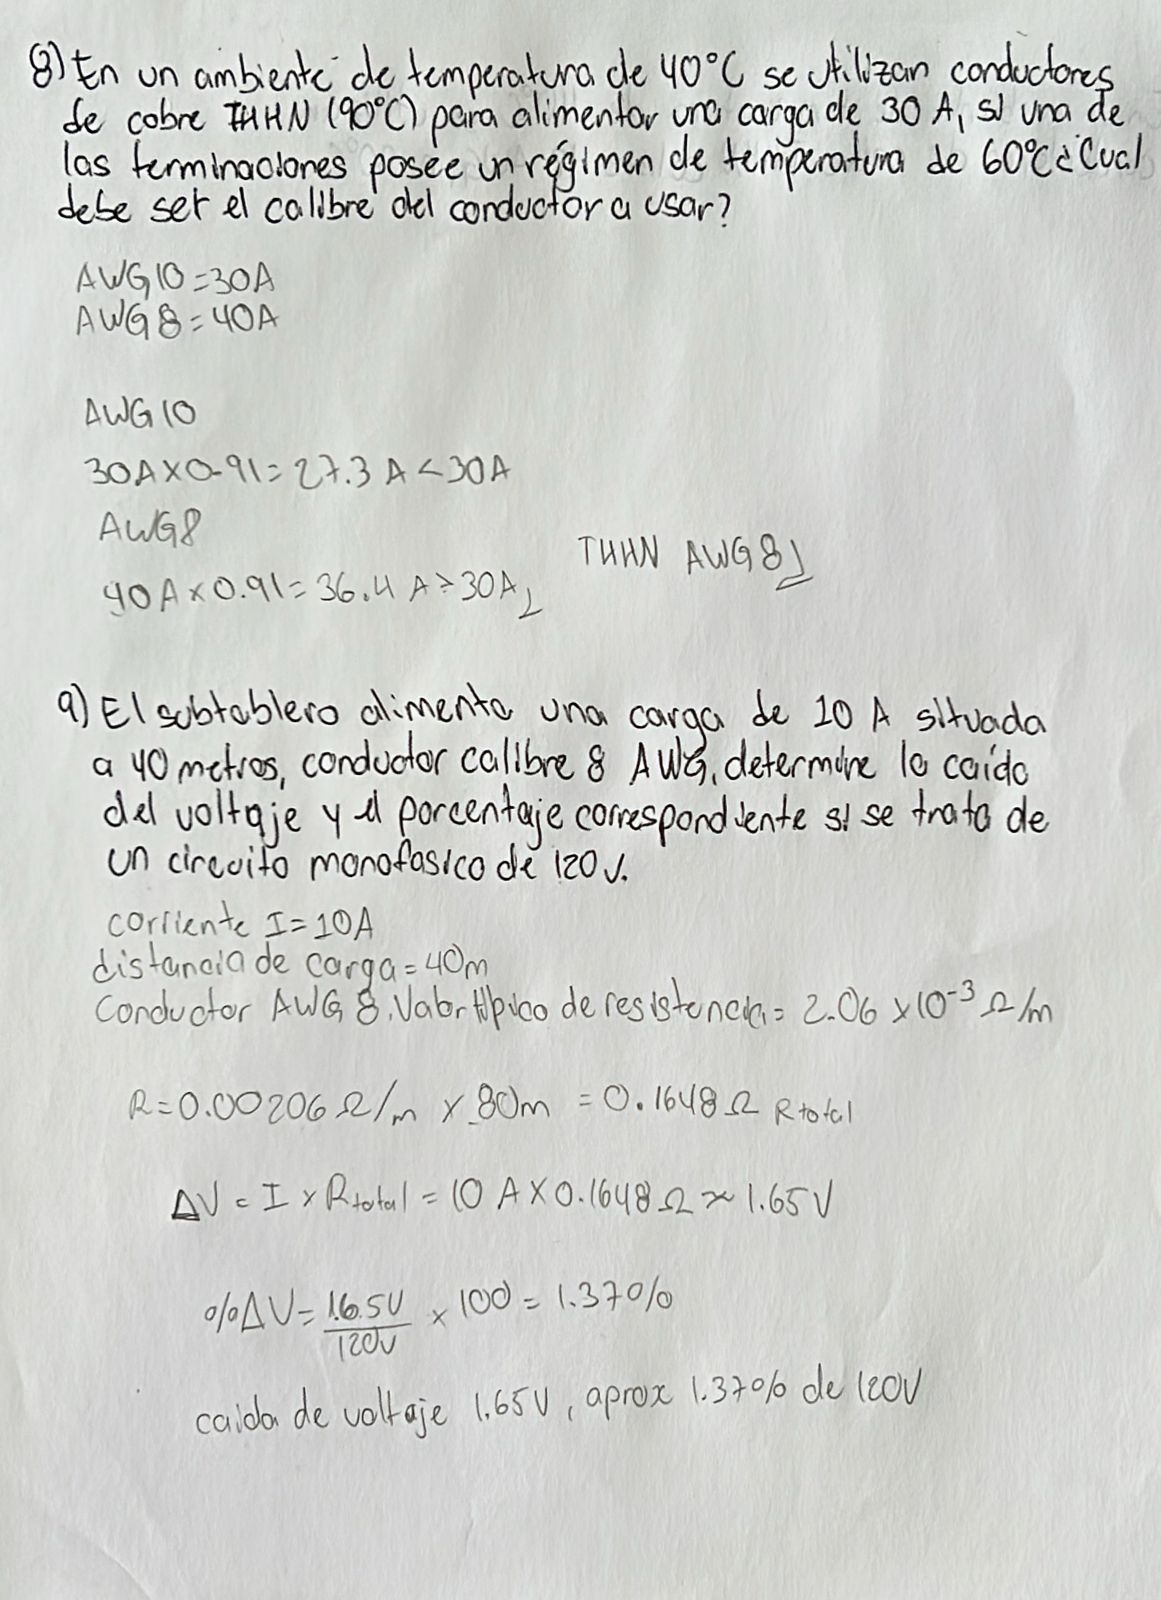 8) En un ambiente de temperatura de 40°C se utilizan conductores
de cobre THHN (90°C) para alimentar una carga de 30 A, si una de
las terminaciones posee un régimen de temperatura de 60°C ¿Cual
debe ser el calibre del conductor a usar?
AWG 10 = 30A
AWG 8 = 40A
AWG 10
30A x 0.91 = 27.3 A < 30A
AWG8
40A x 0.91 = 36.4 A > 30A
THHN AWG 8
9) El subtablero alimenta una carga de 10 A situada
a 40 metros, conductor calibre 8 AWG, determine la caída
del voltaje y el porcentaje correspondiente si se trata de
un circuito monofasico de 120 V.
corriente I = 10A
distancia de carga = 40m
Conductor AWG 8. Valor típico de resistencia = 2.06 x 10⁻³ Ω/m
R = 0.00206 Ω/m x 80m = 0.1648 Ω Rtotal
ΔV = I x Rtotal = 10 A x 0.1648 Ω ≈ 1.65 V
%ΔV = 1.65V / 120V x 100 = 1.37%
caida de voltaje 1.65V, aprox 1.37% de 120V